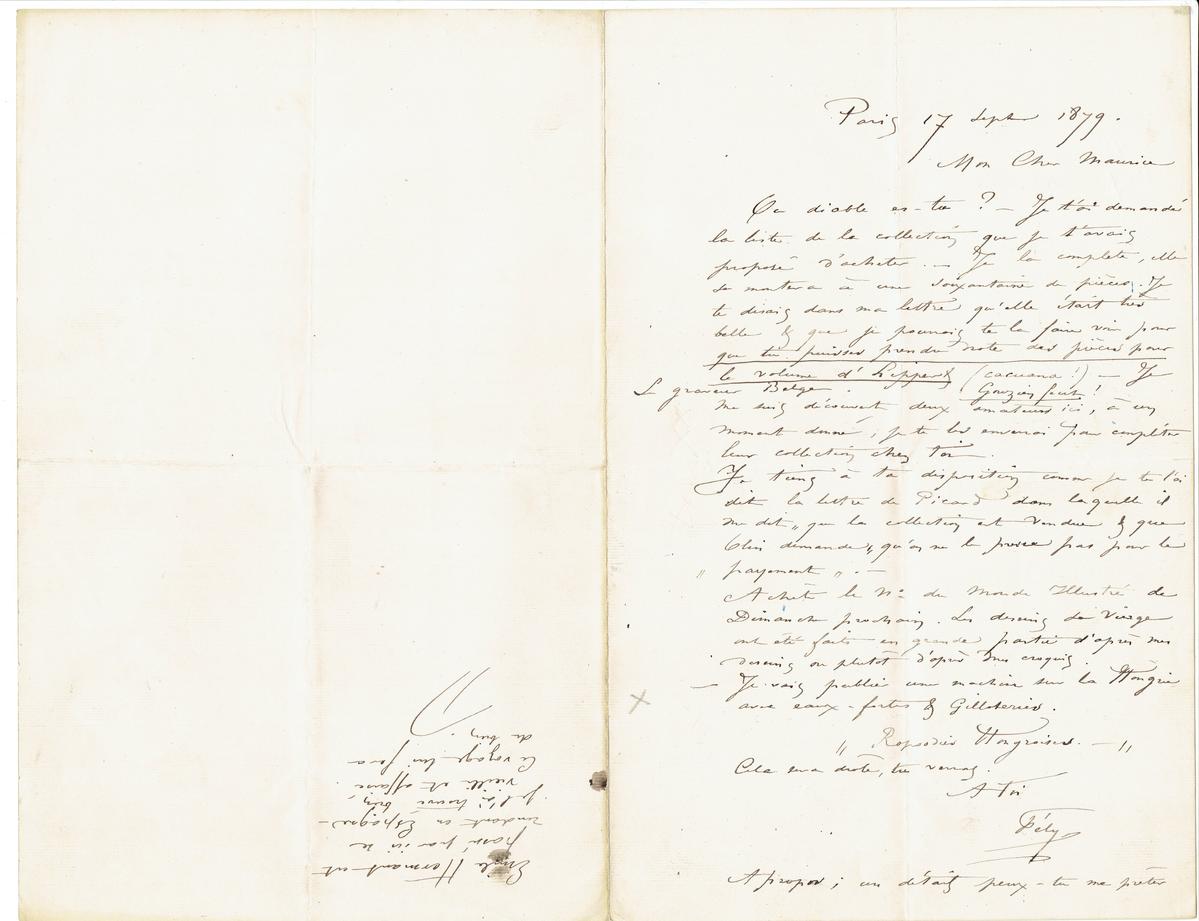 Paris 17 Septbr 1879.
Mon Cher Maurice
Ou diable es-tu ? — Je t'ai demandé
la liste de la collection que je t'avais
proposé d'acheter. — Je la complete, elle
se montera à une soixantaine de pièces. Je
te disais dans ma lettre qu'elle était très
belle & que je pourrais te la faire voir pour
que tu puisses prendre note des pièces pour
le volume d'Hippert (cacuana !) — Je
Le graveur Belge. Gouzien fecit !
me suis découvert deux amateurs ici, à un
moment donné, je te les enverrai pour compléter
leur collection chez toi.
Je tiens à ta disposition comme je te l'ai
dit la lettre de Picard dans laquelle il
me dit „ que la collection est vendue & que
Olin demande „ qu'on ne le presse pas pour le
„ payement „ . —
Achète le No du Monde Illustré de
Dimanche prochain. Les dessins de Vierge
ont été faits en grande partie d'après mes
dessins ou plutôt d'après mes croquis.
— Je vais publier une machine sur la Hongrie
avec eaux-fortes & Gilloteries.
„ Rapsodies Hongroises. — „
Cela sera drôle, tu verras.
A toi
Fély
A propos ; un détail peux-tu me prêter
Emile Hermant est
passé par ici se
rendant en Espagne —
je l'ai trouvé bien,
vieilli et affaissé.
Ce voyage lui fera
du bien.